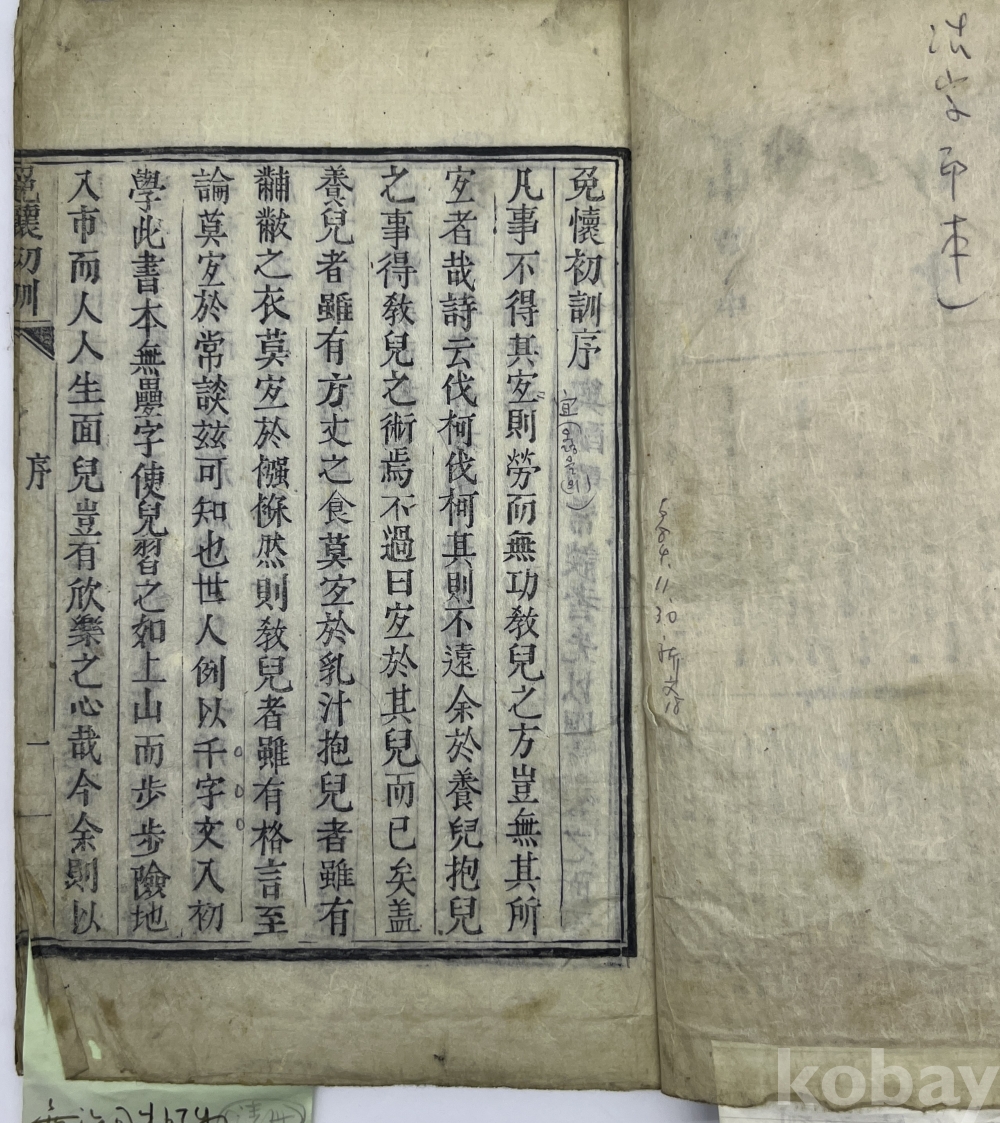 活字印本
免懷初訓序
凡事不得其㝎則勞而無功敎兒之方豈無其所
㝎者哉詩云伐柯伐柯其則不遠余於養兒抱兒
之事得敎兒之術焉不過曰㝎於其兒而已矣盖
養兒者雖有方丈之食莫㝎於乳汁抱兒者雖有
黼黻之衣莫㝎於襁褓然則敎兒者雖有格言至
論莫㝎於常談玆可知也世人例以千字文入初
學此書本無疊字使兒習之如上山而步步險地
入市而人人生面兒豈有欣樂之心哉今余則以
免懷初訓
序
一
宜
kobay